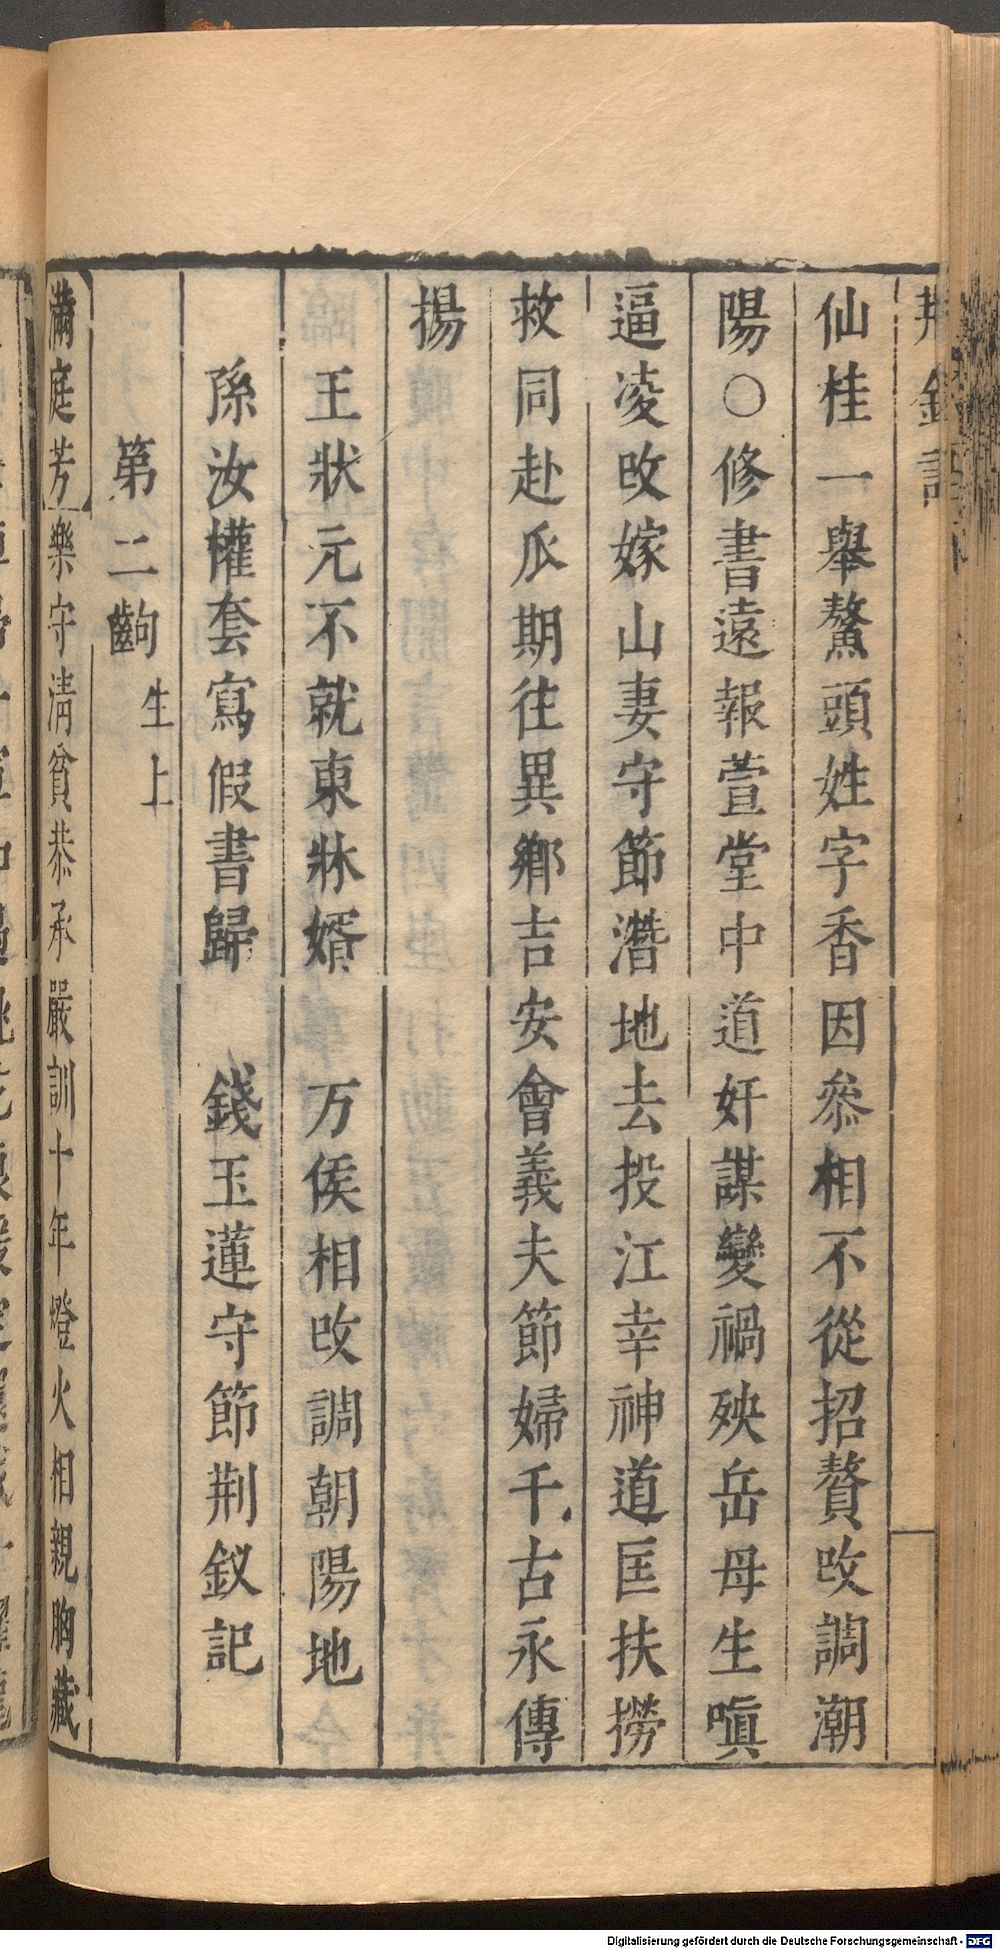 荆釵記
仙桂一舉鰲頭姓字香因叅相不從招贅攺調潮
陽○修書遠報萱堂中道奸謀變禍殃岳母生嗔
逼凌攺嫁山妻守節潛地去投江幸神道匡扶撈
救同赴瓜期往異鄉吉安會義夫節婦千古永傳
揚
王狀元不就東牀婿　万俟相攺調朝陽地
孫汝權套寫假書歸　錢玉蓮守節荆釵記
第二齣 生上
滿庭芳樂守清貧恭承嚴訓十年燈火相親胸藏
Digitalisierung gefördert durch die Deutsche Forschungsgemeinschaft - DFG